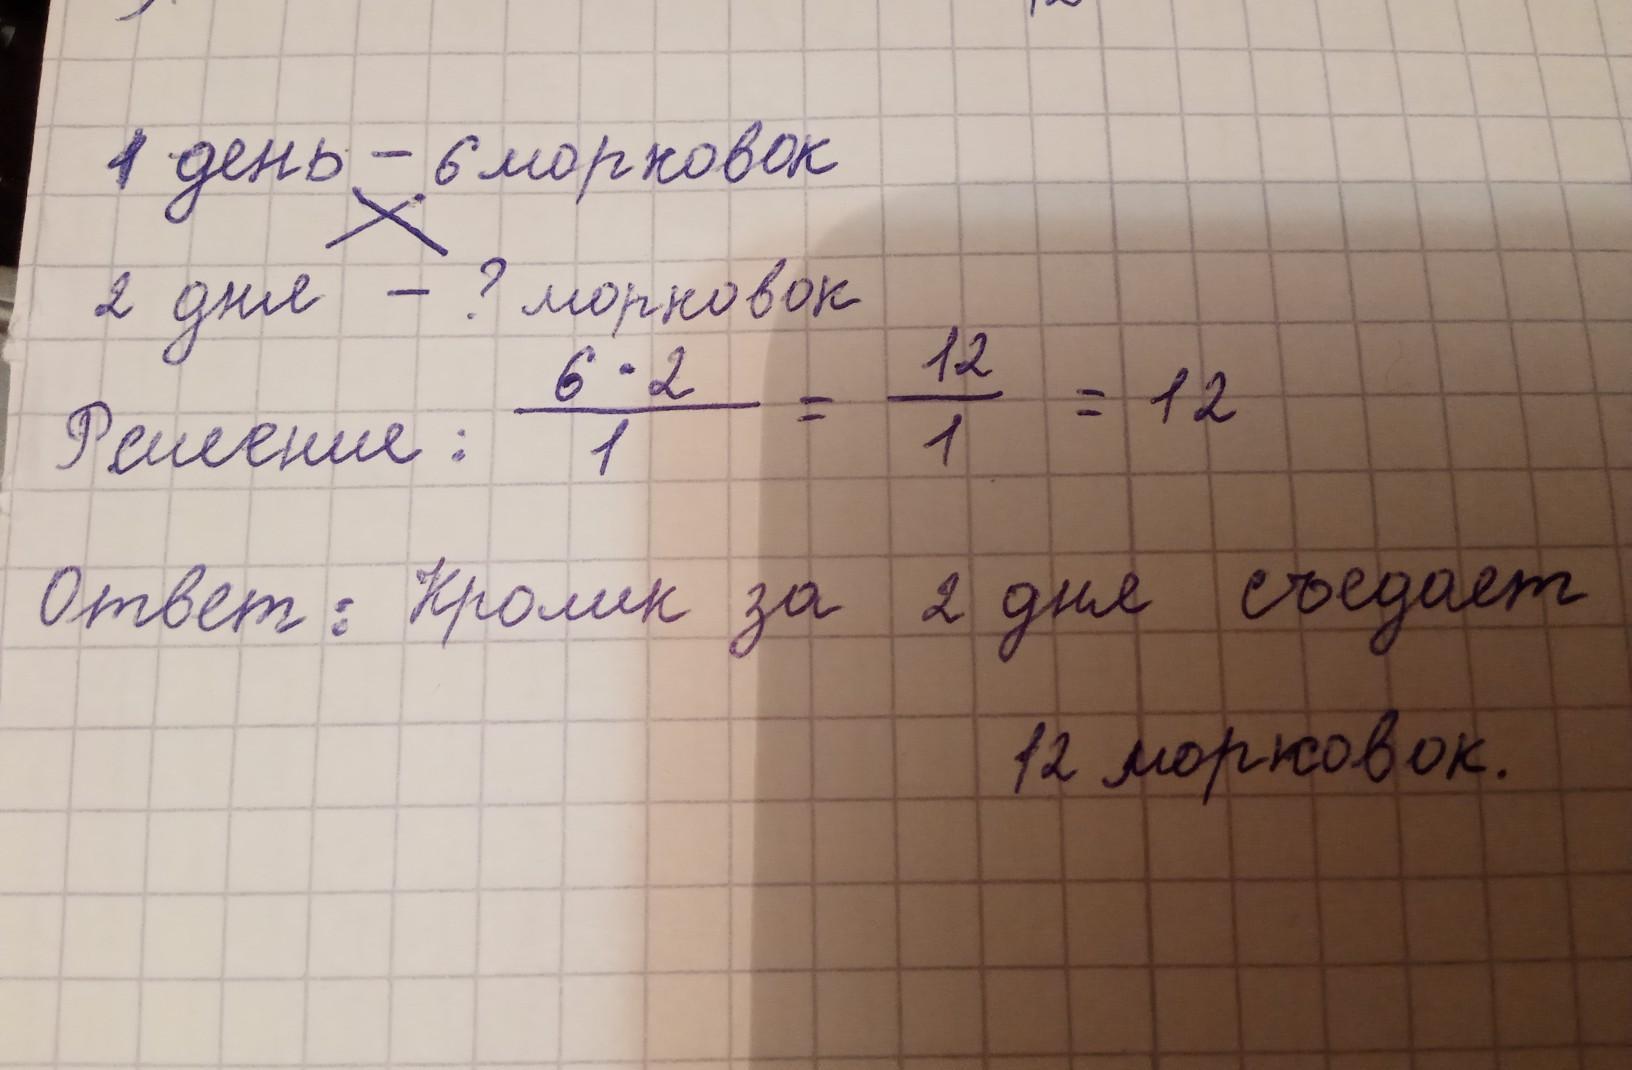 1 день - 6 морковок
2 дня - ? морковок
Решение: 6 · 2 / 1 = 12 / 1 = 12
Ответ: Кролик за 2 дня съедает
12 морковок.